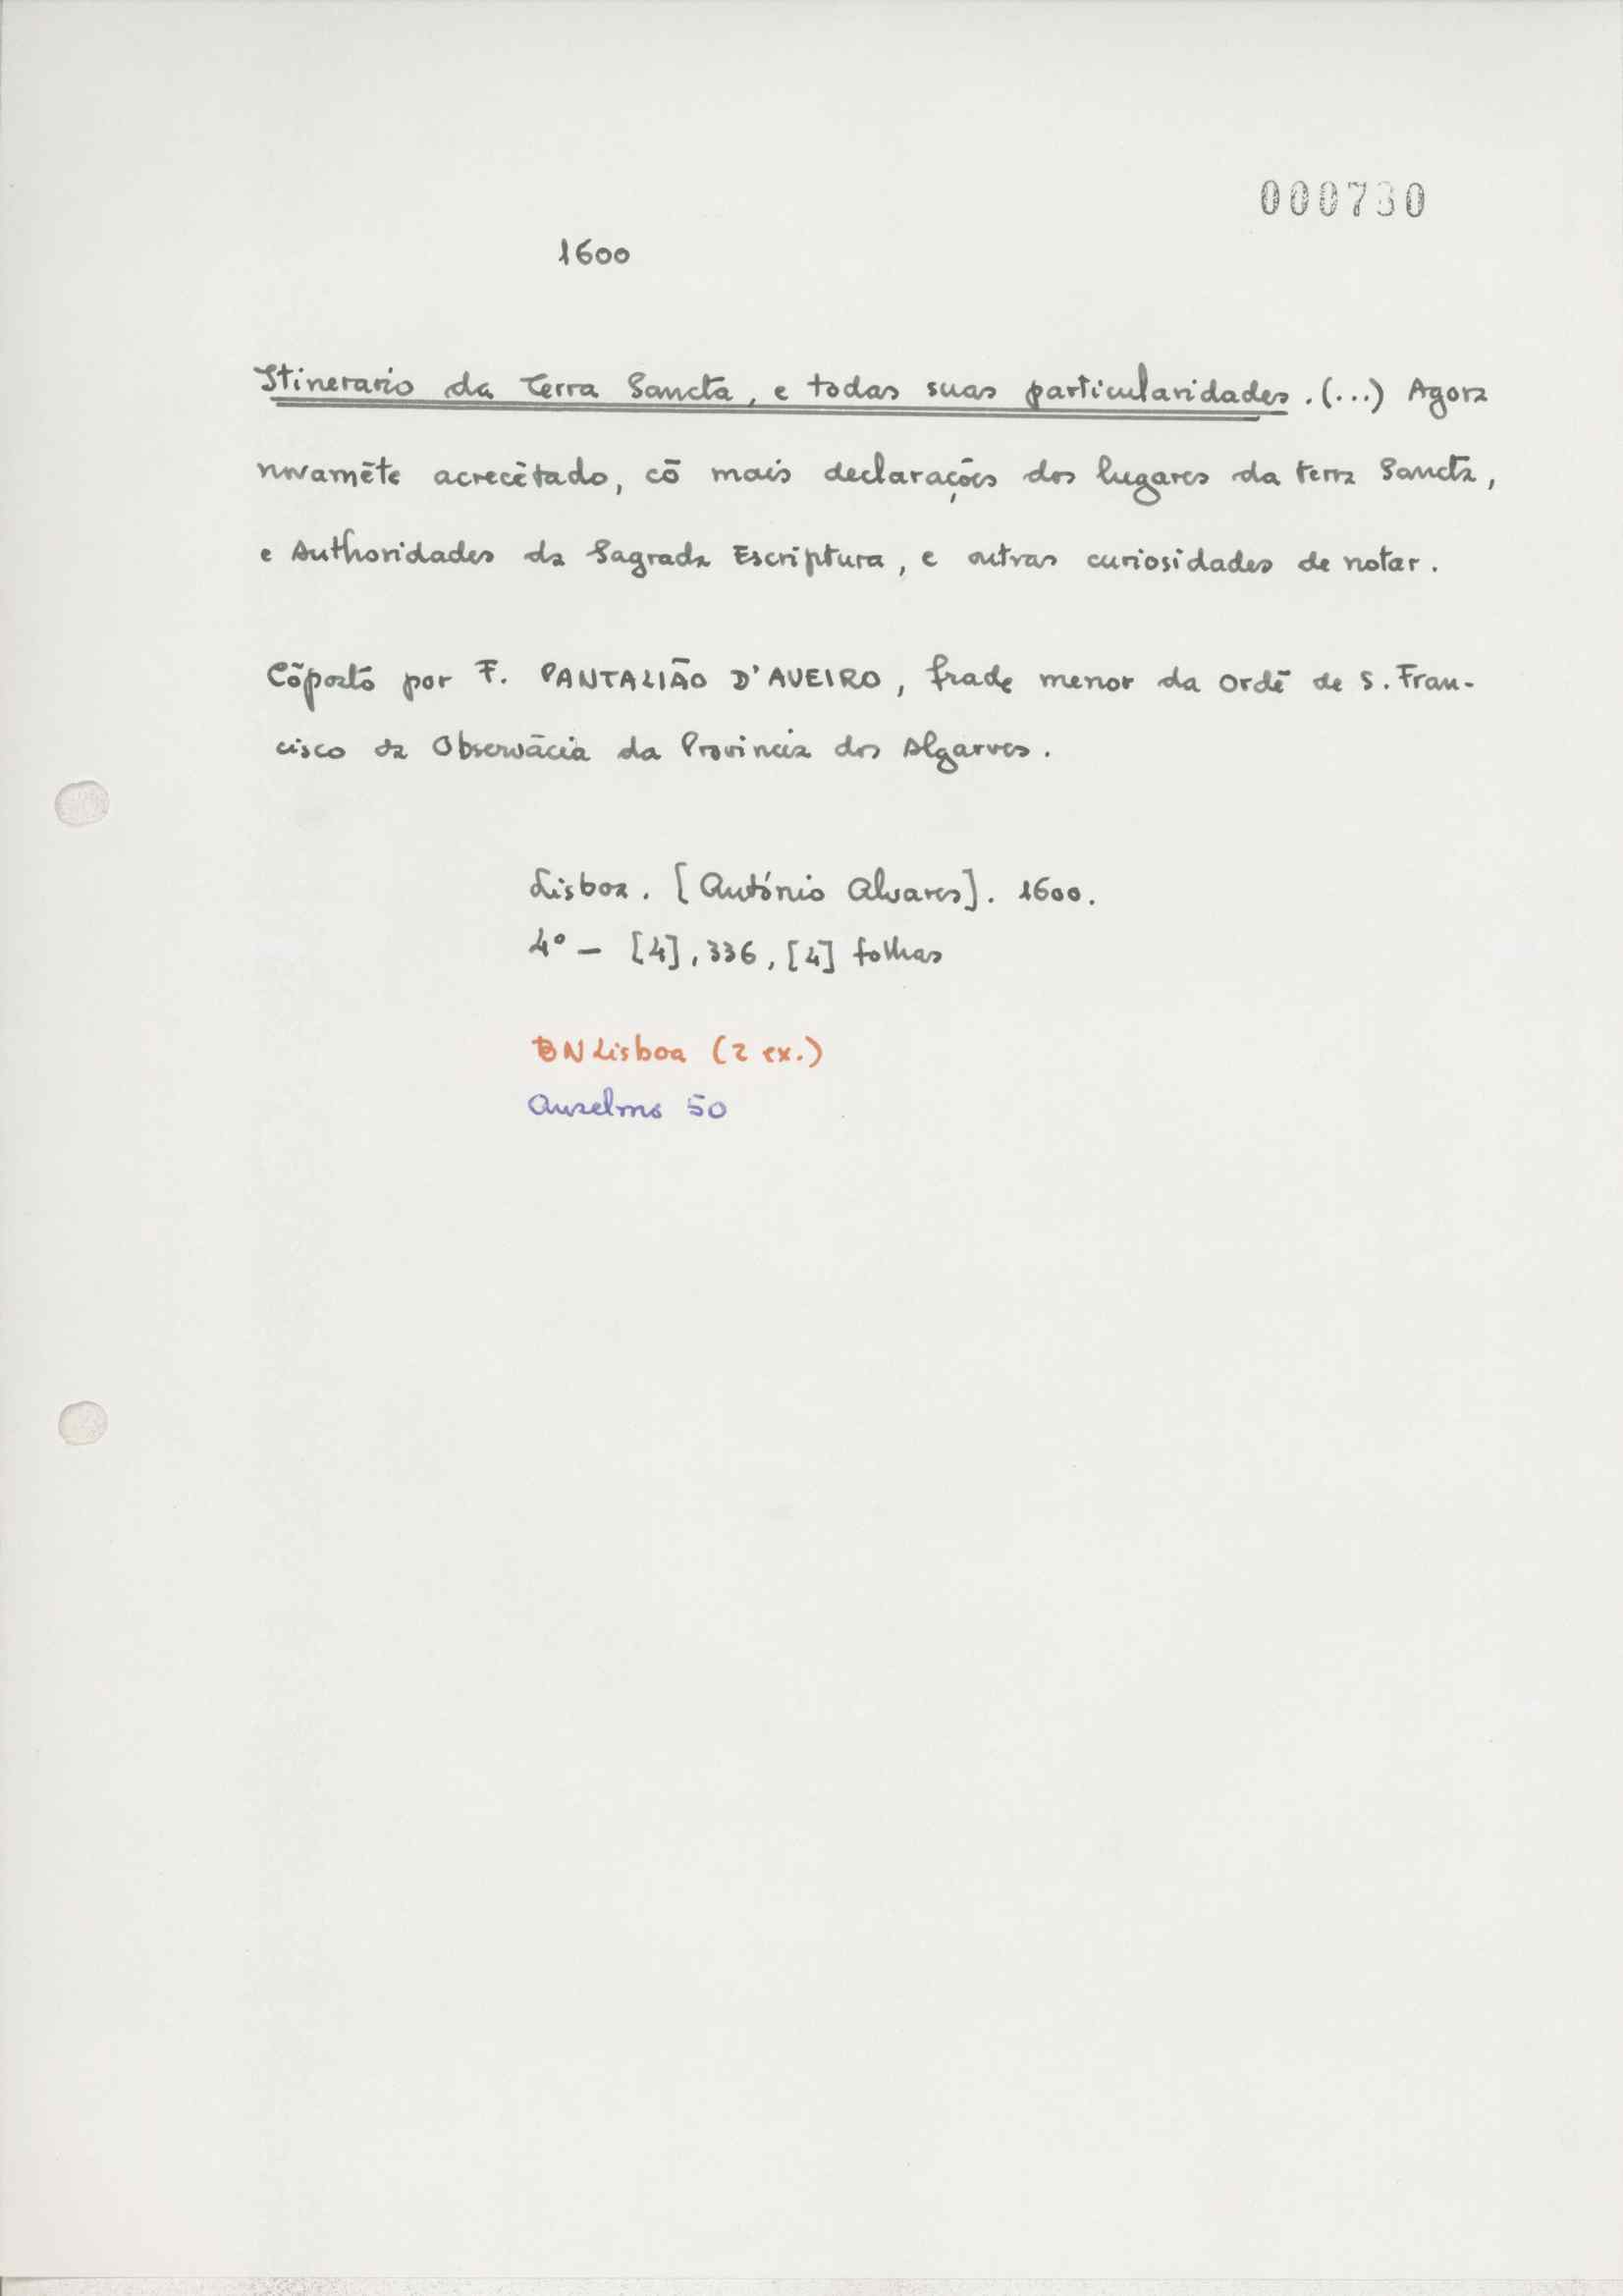 000730
1600
Itinerario da Terra Sancta, e todas suas particularidades. (...) Agora
novamēte acrecētado, cō mais declarações dos lugares da terra Sancta,
e Authoridades da Sagrada Escriptura, e outras curiosidades de notar.
Cōposto por F. PANTALIÃO D'AVEIRO, frade menor da ordē de S. Fran-
cisco da Observācia da Provincia dos Algarves.
Lisboa. [António Alvares]. 1600.
4º - [4], 336, [4] folhas
BN Lisboa (2 ex.)
Anselmo 50